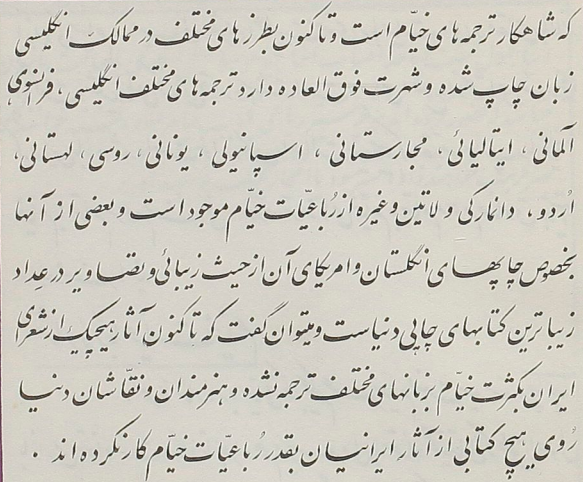 که شاهکار ترجمه‌های خیّام است و تاکنون بطرزهای مختلف در ممالک انگلیسی
زبان چاپ شده و شهرت فوق‌العاده دارد ترجمه‌های مختلف انگلیسی، فرانسوی
آلمانی، ایتالیائی، مجارستانی، اسپانیولی، یونانی، روسی، لهستانی،
اُردو، دانمارکی و لاتین و غیره از رُباعیّات خیّام موجود است و بعضی از آنها
بخصوص چاپهای انگلستان و امریکای آن از حیث زیبائی و تصاویر در عِداد
زیباترین کتابهای چاپی دنیاست و میتوان گفت که تاکنون آثار هیچیک از شعرای
ایران بکثرت خیّام بزبانهای مختلف ترجمه نشده و هنرمندان و نقّاشان دنیا
رُوی هیچ کتابی از آثار ایرانیان بقدر رُباعیّات خیّام کار نکرده‌اند .